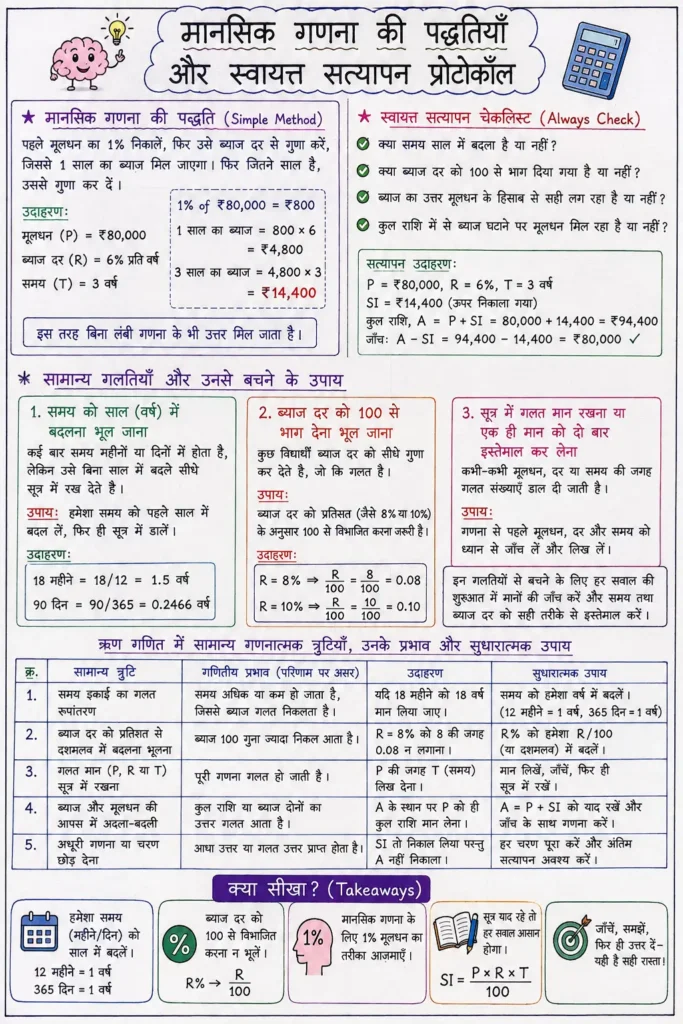 मानसिक गणना की पद्धतियाँ
और स्वायत्त सत्यापन प्रोटोकॉल
★ मानसिक गणना की पद्धति (Simple Method)
पहले मूलधन का 1% निकालें, फिर उसे ब्याज दर से गुणा करें,
जिससे 1 साल का ब्याज मिल जाएगा। फिर जितने साल है,
उससे गुणा कर दें।
उदाहरण:
मूलधन (P) = ₹80,000
ब्याज दर (R) = 6% प्रति वर्ष
समय (T) = 3 वर्ष
1% of ₹80,000 = ₹800
1 साल का ब्याज = 800 × 6
= ₹4,800
3 साल का ब्याज = 4,800 × 3
= ₹14,400
इस तरह बिना लंबी गणना के भी उत्तर मिल जाता है।
★ स्वायत्त सत्यापन चेकलिस्ट (Always Check)
क्या समय साल में बदला है या नहीं?
क्या ब्याज दर को 100 से भाग दिया गया है या नहीं?
ब्याज का उत्तर मूलधन के हिसाब से सही लग रहा है या नहीं?
कुल राशि में से ब्याज घटाने पर मूलधन मिल रहा है या नहीं?
सत्यापन उदाहरण:
P = ₹80,000, R = 6%, T = 3 वर्ष
SI = ₹14,400 (ऊपर निकाला गया)
कुल राशि, A = P + SI = 80,000 + 14,400 = ₹94,400
जाँच: A − SI = 94,400 − 14,400 = ₹80,000 ✓
* सामान्य गलतियाँ और उनसे बचने के उपाय
1. समय को साल (वर्ष) में
बदलना भूल जाना
कई बार समय महीनों या दिनों में होता है,
लेकिन उसे बिना साल में बदले सीधे
सूत्र में रख देते है।
उपाय: हमेशा समय को पहले साल में
बदल लें, फिर ही सूत्र में डालें।
उदाहरण:
18 महीने = 18/12 = 1.5 वर्ष
90 दिन = 90/365 = 0.2466 वर्ष
2. ब्याज दर को 100 से
भाग देना भूल जाना
कुछ विद्यार्थी ब्याज दर को सीधे गुणा
कर देते है, जो कि गलत है।
उपाय:
ब्याज दर को प्रतिसत (जैसे 8% या 10%)
के अनुसार 100 से विभाजित करना जरूरी है।
उदाहरण:
R = 8% ⇒ R/100 = 8/100 = 0.08
R = 10% ⇒ R/100 = 10/100 = 0.10
3. सूत्र में गलत मान रखना या
एक ही मान को दो बार
इस्तेमाल कर लेना
कभी-कभी मूलधन, दर या समय की जगह
गलत संख्याएँ डाल दी जाती है।
उपाय:
गणना से पहले मूलधन, दर और समय को
ध्यान से जाँच लें और लिख लें।
इन गलतियों से बचने के लिए हर सवाल की
शुरुआत में मानों की जाँच करें और समय तथा
ब्याज दर को सही तरीके से इस्तेमाल करें।
ऋण गणित में सामान्य गणनात्मक त्रुटियाँ, उनके प्रभाव और सुधारात्मक उपाय
क्र. सामान्य त्रुटि गणितीय प्रभाव (परिणाम पर असर) उदाहरण सुधारात्मक उपाय
1. समय इकाई का गलत रूपांतरण समय अधिक या कम हो जाता है, जिससे ब्याज गलत निकलता है। यदि 18 महीने को 18 वर्ष मान लिया जाए। समय को हमेशा वर्ष में बदलें। (12 महीने = 1 वर्ष, 365 दिन = 1 वर्ष)
2. ब्याज दर को प्रतिशत से दशमलव में बदलना भूलना ब्याज 100 गुना ज्यादा निकल आता है। R = 8% को 8 की जगह 0.08 न लगाना। R% को हमेशा R/100 (या दशमलव) में बदलें।
3. गलत मान (P, R या T) सूत्र में रखना पूरी गणना गलत हो जाती है। P की जगह T (समय) लिख देना। मान लिखें, जाँचें, फिर ही सूत्र में रखें।
4. ब्याज और मूलधन की आपस में अदला-बदली कुल राशि या ब्याज दोनों का उत्तर गलत आता है। A के स्थान पर P को ही कुल राशि मान लेना। A = P + SI को याद रखें और जाँच के साथ गणना करें।
5. अधूरी गणना या चरण छोड़ देना आधा उत्तर या गलत उत्तर प्राप्त होता है। SI तो निकाल लिया परन्तु A नहीं निकाला। हर चरण पूरा करें और अंतिम सत्यापन अवश्य करें।
क्या सीखा? (Takeaways)
हमेशा समय
(महीने/दिन) को
साल में बदलें।
12 महीने = 1 वर्ष
365 दिन = 1 वर्ष
%
ब्याज दर को
100 से विभाजित
करना न भूलें।
R% → R/100
1%
मानसिक गणना के
लिए 1% मूलधन का
तरीका आजमाएँ।
सूत्र याद रहे तो
हर सवाल आसान
होगा।
SI = P × R × T/100
जाँचें, समझें,
फिर ही उत्तर दें–
यही है सही रास्ता!